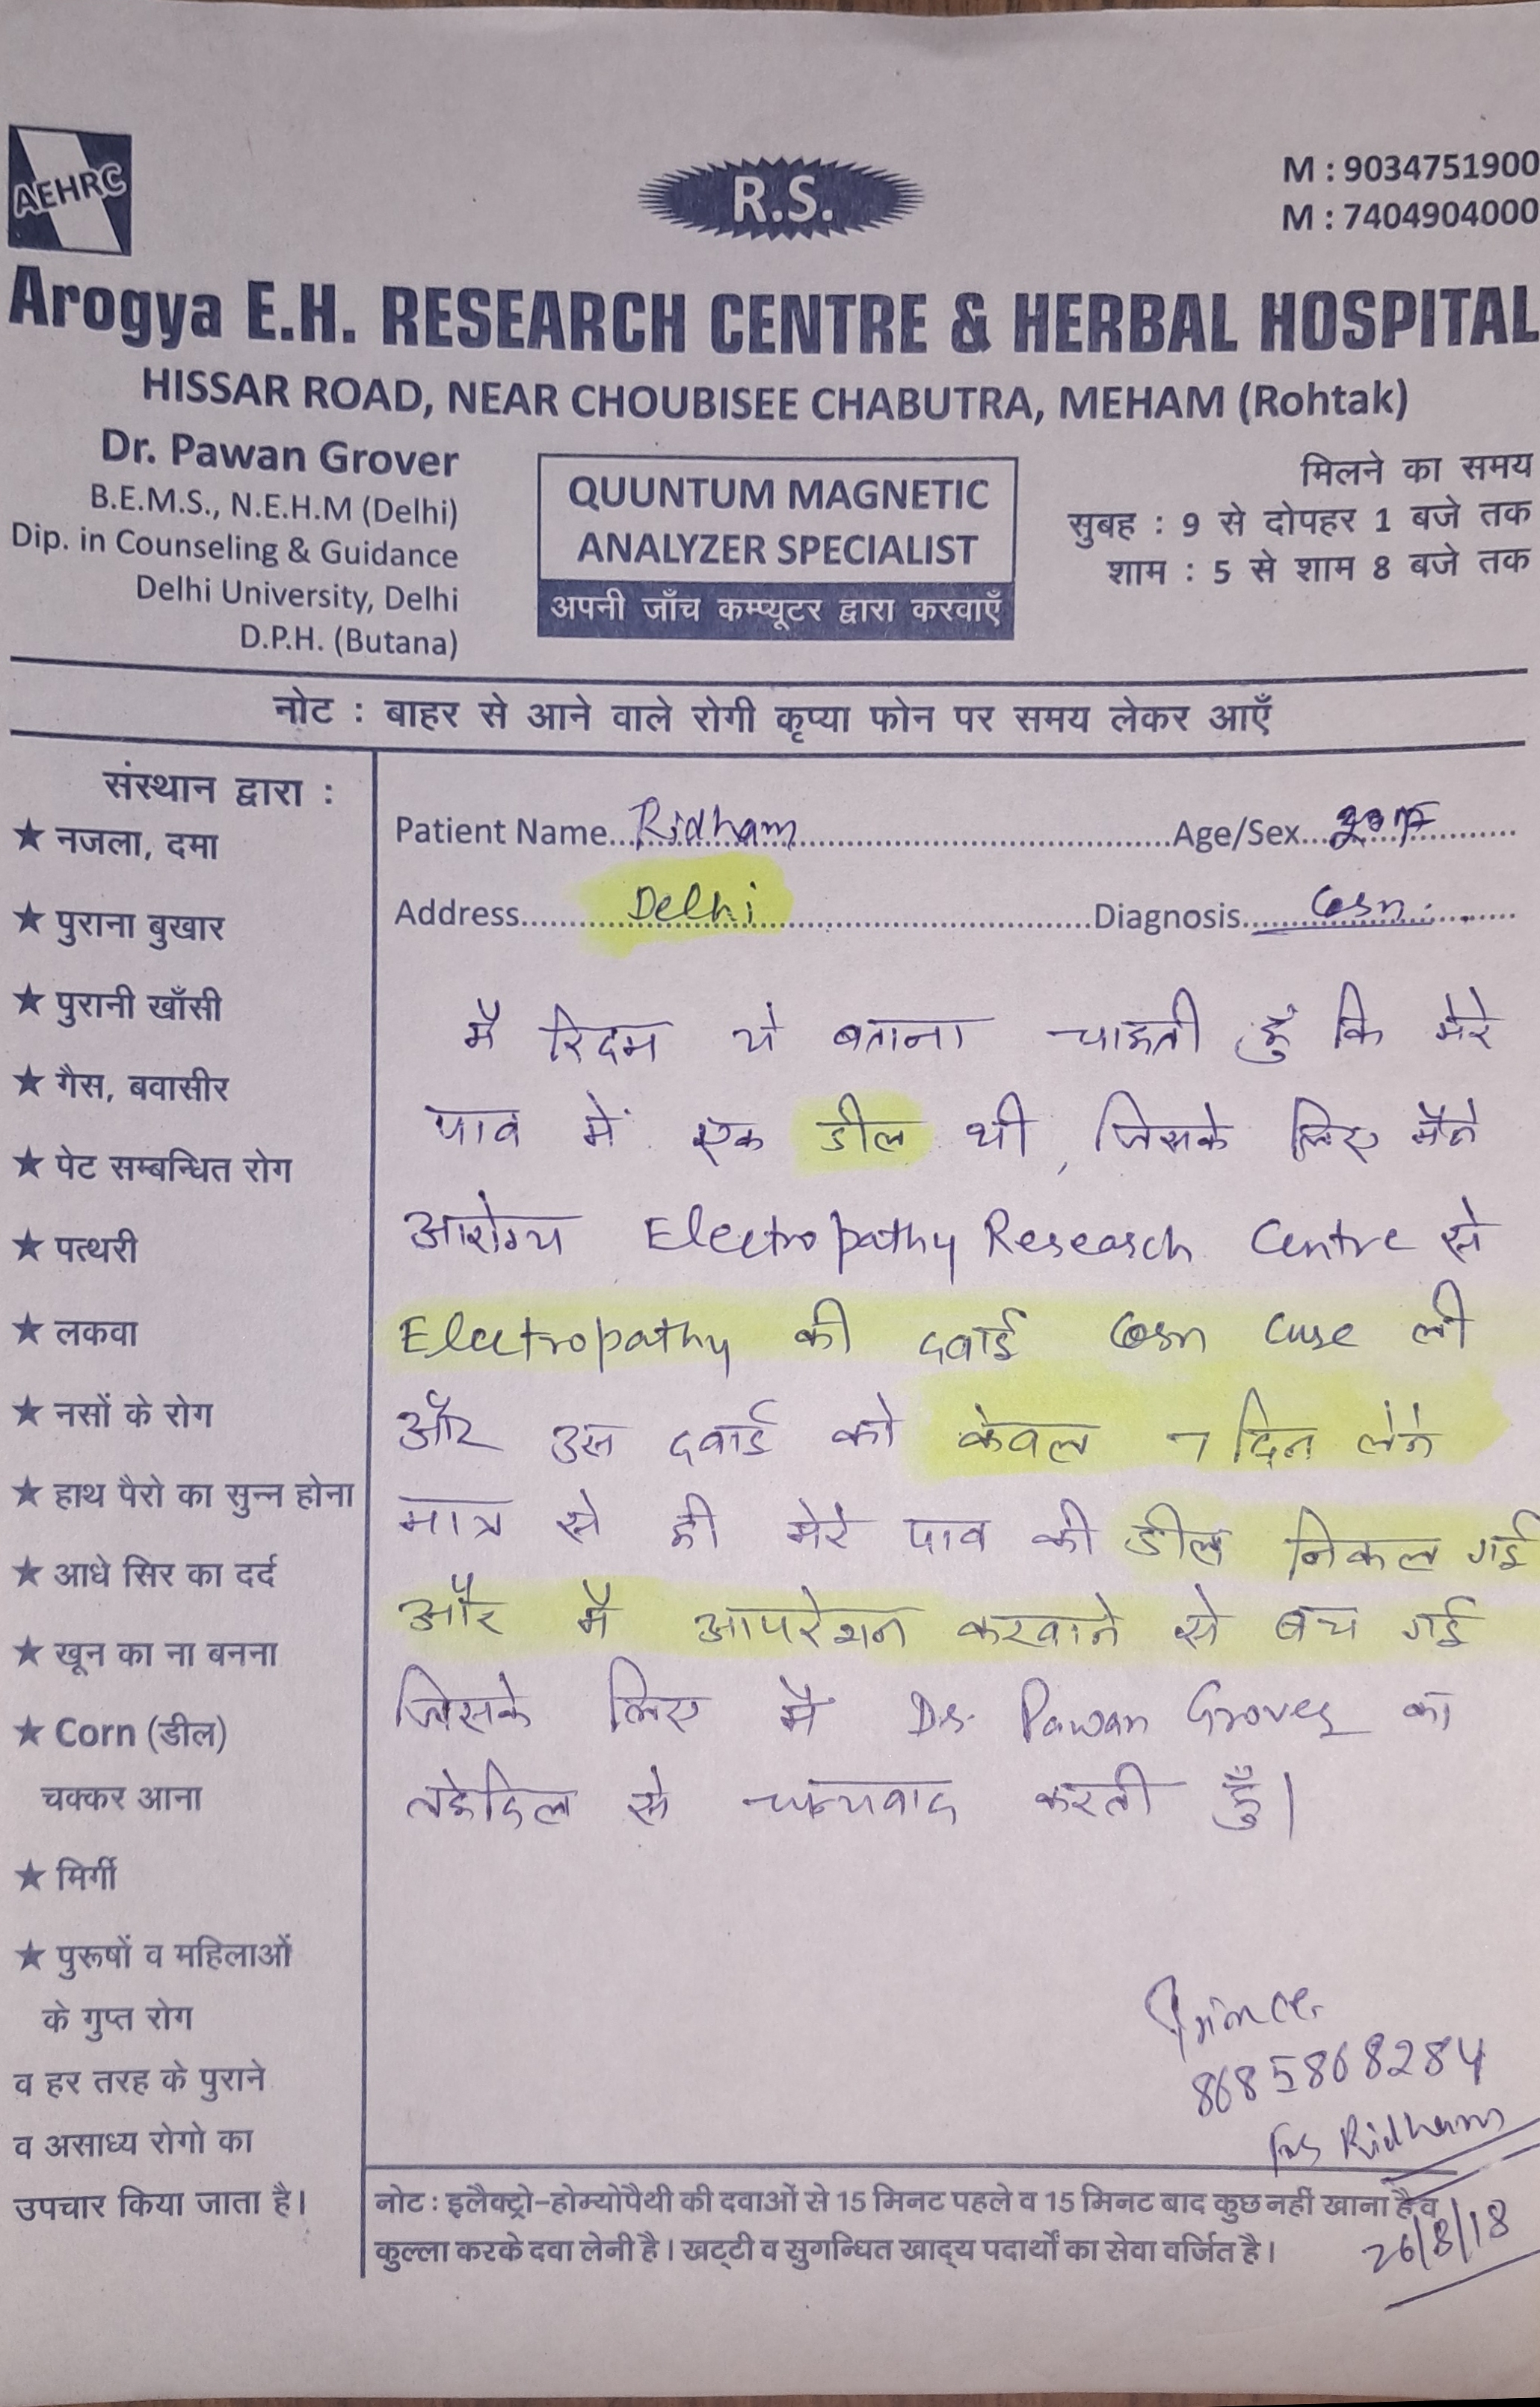 AEHRC
R.S.
M : 9034751900
M : 7404904000
Arogya E.H. RESEARCH CENTRE & HERBAL HOSPITAL
HISSAR ROAD, NEAR CHOUBISEE CHABUTRA, MEHAM (Rohtak)
Dr. Pawan Grover
B.E.M.S., N.E.H.M (Delhi)
Dip. in Counseling & Guidance
Delhi University, Delhi
D.P.H. (Butana)
QUUNTUM MAGNETIC
ANALYZER SPECIALIST
अपनी जाँच कम्प्यूटर द्वारा करवाएँ
मिलने का समय
सुबह : 9 से दोपहर 1 बजे तक
शाम : 5 से शाम 8 बजे तक
नोट : बाहर से आने वाले रोगी कृप्या फोन पर समय लेकर आएँ
संस्थान द्वारा :
★ नजला, दमा
★ पुराना बुखार
★ पुरानी खाँसी
★ गैस, बवासीर
★ पेट सम्बन्धित रोग
★ पत्थरी
★ लकवा
★ नसों के रोग
★ हाथ पैरो का सुन्न होना
★ आधे सिर का दर्द
★ खून का ना बनना
★ Corn (डील)
चक्कर आना
★ मिर्गी
★ पुरूषों व महिलाओं
के गुप्त रोग
व हर तरह के पुराने
व असाध्य रोगो का
उपचार किया जाता है।
Patient Name Ridham Age/Sex
Address Delhi Diagnosis Corn
मै रिदम ये बताना चाहती हुँ कि मेरे
पाव में एक डील थी, जिसके लिए मैने
आरोग्य Electropathy Research Centre से
Electropathy की दवाई Corn Cure ली
और उस दवाई को केवल 7 दिन लेने
मात्र से ही मेरे पाव की डील निकल गई
और मै आपरेशन करवाने से बच गई
जिसके लिए मै Dr. Pawan Grover का
तहेदिल से धन्यवाद करती हुँ।
Prince
8685868284
For Ridham
26/8/18
नोट : इलैक्ट्रो-होम्योपैथी की दवाओं से 15 मिनट पहले व 15 मिनट बाद कुछ नहीं खाना है व
कुल्ला करके दवा लेनी है। खट्टी व सुगन्धित खाद्य पदार्थों का सेवा वर्जित है।